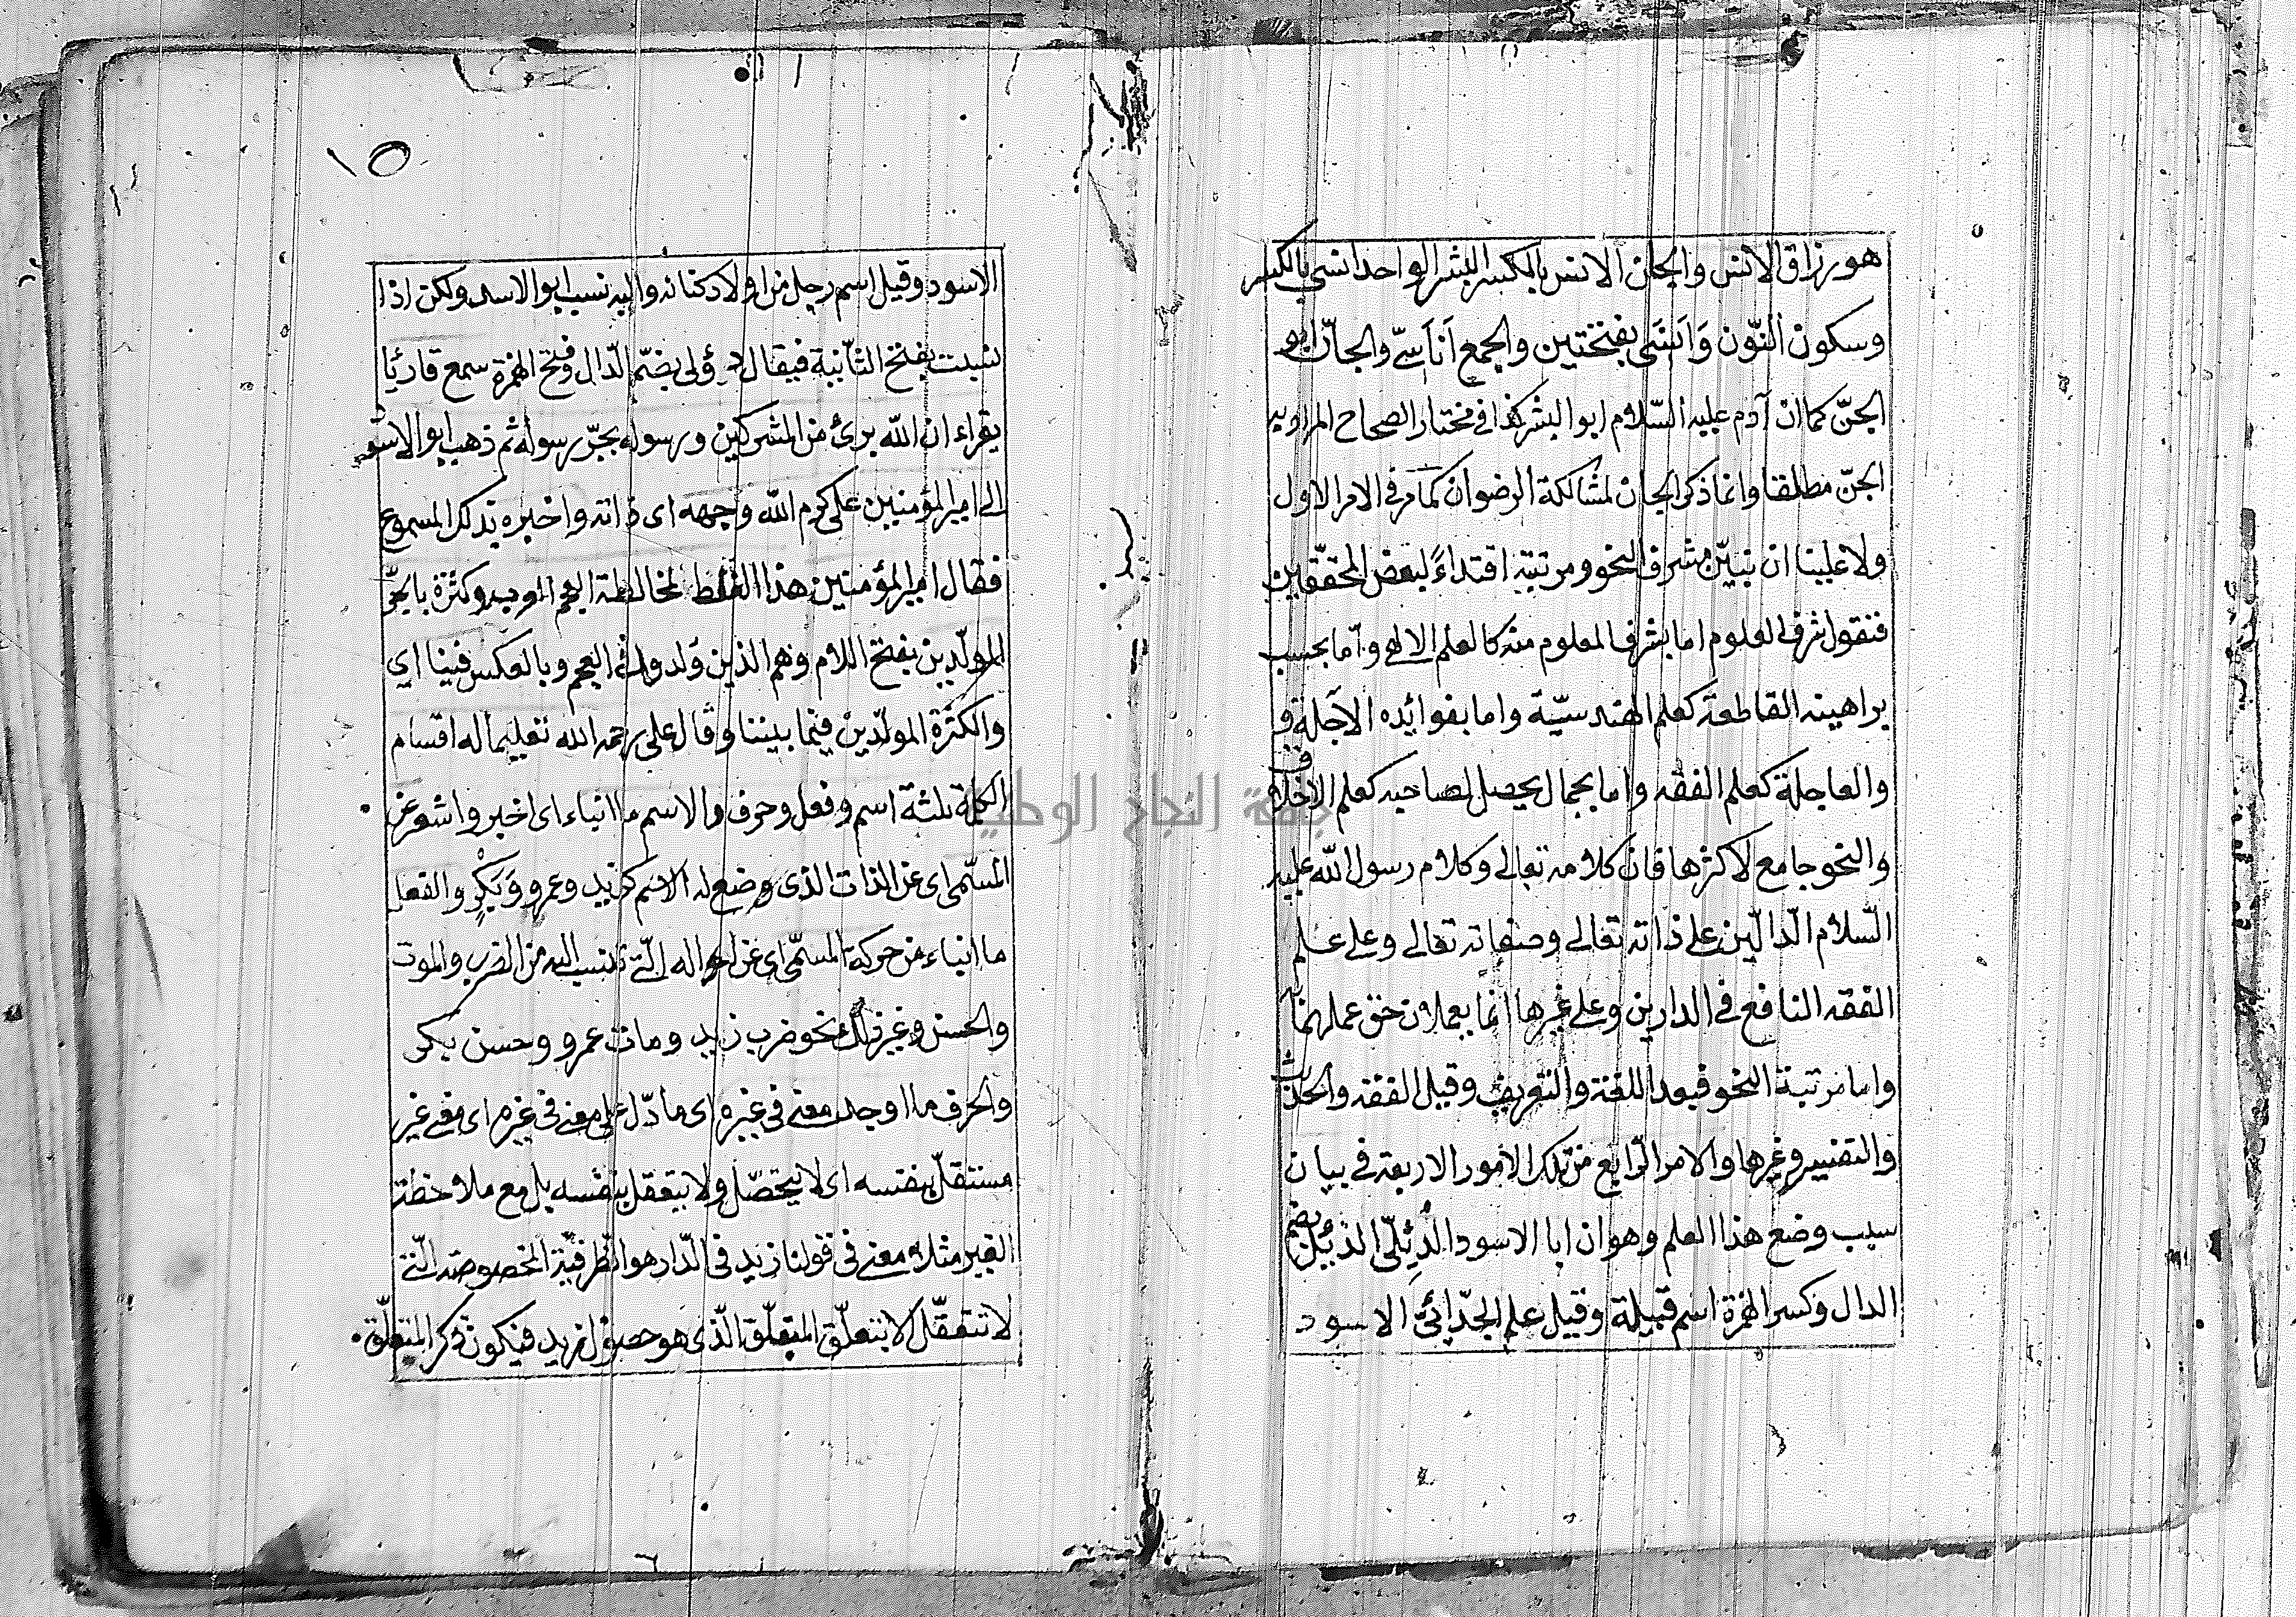 هو رزاق الانس والجان الانس بالكسر البشر الواحد انسي بالكسر
وسكون النّون وَاَنَسَى بفتحتين والجمع اَنَاسِىّ والجانّ ابو
الجنّ كما ان آدم عليه السّلام ابو البشر كذا في مختار الصحاح المراد به
الجنّ مطلقا وانما ذكر الجان لمشاكلة الرضوان كما مر في الامر الاول
ولا علينا ان نبيّن شرف النحو ومرتبته اقتداءً لبعض المحقّقين
فنقول شرف العلوم اما بشرف المعلوم منه كالعلم الالهي وامّا بحسب
براهينه القاطعة كعلم الهندسيّة واما بفوائده الآجلة و
والعاجلة كعلم الفقه واما بجمال يحصل لصاحبه كعلم الاخلاق
والنحو جامع لاكثرها فان كلامه تعالى وكلام رسول الله عليه
السّلام الدّالّين على ذاته تعالى وصفاته تعالى وعلى علم
الفقه النافع في الدارين وعلى غيرها انما يعملان حق عملهما به
واما مرتبة النحو فبعد اللغة والتصريف وقبل الفقه والحديث
والتفسير وغيرها والامر الرّابع من تلك الامور الاربعة في بيان
سبب وضع هذا العلم وهو ان ابا الاسود الدُئِلّى الدّئِل بضم
الدال وكسر الهمزة اسم قبيلة وقيل علم الجدّ ابى الاسود
١٥
الاسود وقيل اسم رجل من اولاد كنانه واليه نسب ابو الاسد ولكن اذا
نسبت بفتح الثّانية فيقال دؤلى بضمّ الدّال وفتح الهمزة سمع قارئا
يقراء ان الله برئ من المشركين ورسوله بجرّ رسوله ثم ذهب ابو الاسود
الى امير المؤمنين على كرم الله وجهه اى ذاته واخبره بذلك المسموع
فقال امير المؤمنين هذا الغلط لمخالطة العجم العرب وكثرة
المولّدين بفتح اللام وهم الذين وُلدوا في العجم وبالعكس فينا اى
والكثرة المولّدين فيما بيننا وقال على رحمه الله تعليما له اقسام
الكلمة ثلثة اسم وفعل وحرف والاسم ما انباء اى اخبر واشعر عن
المسمّى اى عن الذات الذى وضع له الاسم كزيد وعمرو وَبَكْرٍ والفعل
ما انباء عن حركة المسمّى اى عن احواله الّتى تنسب اليه من الضرب والموت
والحسن وغير ذلك نحو ضرب زيد ومات عمرو وحسن بكر
والحرف ما اوجد معنى في غيره اى ما دلّ على معنى في غيره اى معنى غير
مستقلّ بنفسه اى لا يتحصّل ولا يتعقل بنفسه بل مع ملاحظة
الغير مثلا معنى في قولنا زيد في الدّار هو الظّرفيّة المخصوصة الّتى
لا تتعقّل الا بتعلّق المتعلّق الّذى هو حصول زيد فيكون ذكر المتعلّق
جامعة النجاح الوطنية